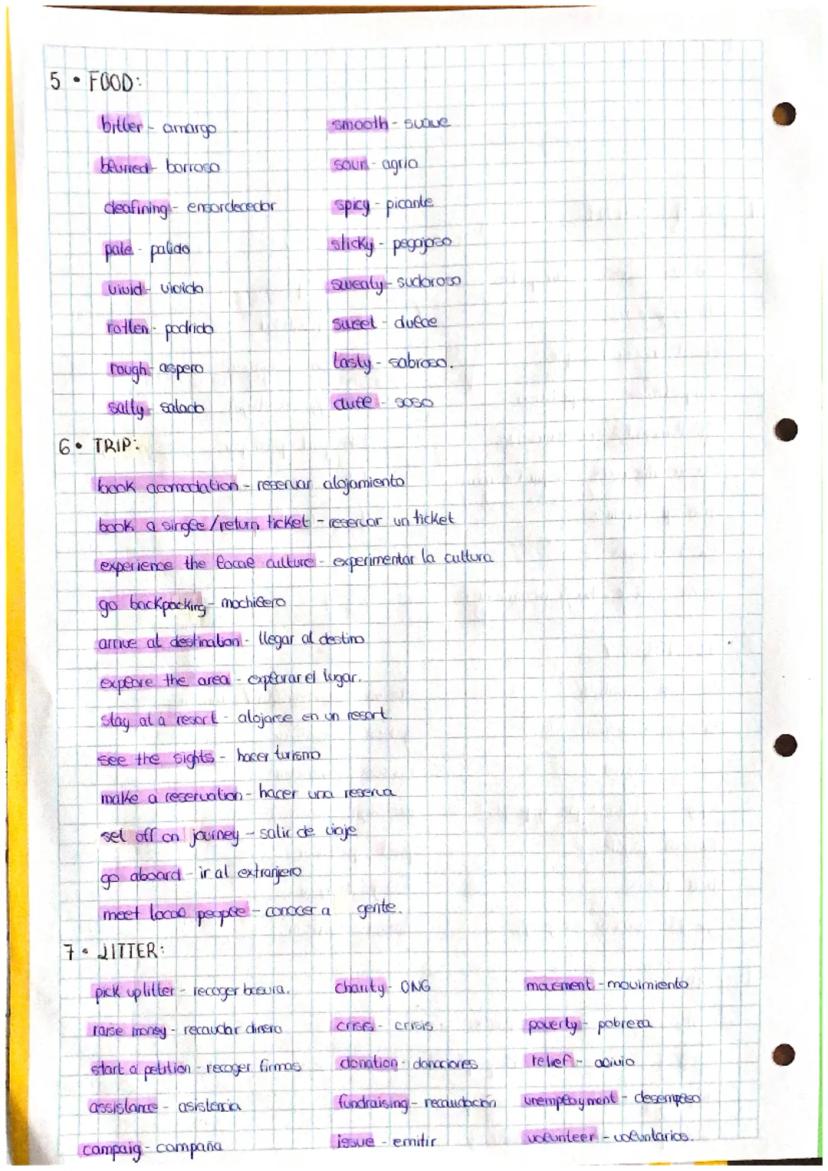 5 • FOOD:
bitter - amargo
blurried - borroso
deafining - ensordecedor
pale - palido
vivid - vivido
rotten - podrido
rough - aspero
salty - salado
smooth - suave
sour - agrio
spicy - picante
sticky - pegajoso
sweaty - sudoroso
sweet - dulce
tasty - sabroso.
dull - soso
6 • TRIP:
book acomodation - reservar alojamiento
book a single/return ticket - reservar un ticket
experience the local culture - experimentar la cultura
go backpacking - mochilero
arrive at destination - llegar al destino
explore the area - explorar el lugar.
stay at a resort - alojarse en un resort
see the sights - hacer turismo
make a reservation - hacer una reserva
set off on journey - salir de viaje
go aboard - ir al extranjero
meet local people - conocer a gente.
7 • LITTER:
pick up litter - recoger basura.
raise money - recaudar dinero
start a petition - recoger firmas
assistance - asistencia
campaig - campaña
charity - ONG
crisis - crisis
donation - donaciones
fundraising - recaudacion
issue - emitir
movement - movimiento
poverty - pobreza
relief - alivio
unemployment - desempleo
volunteer - voluntarios.